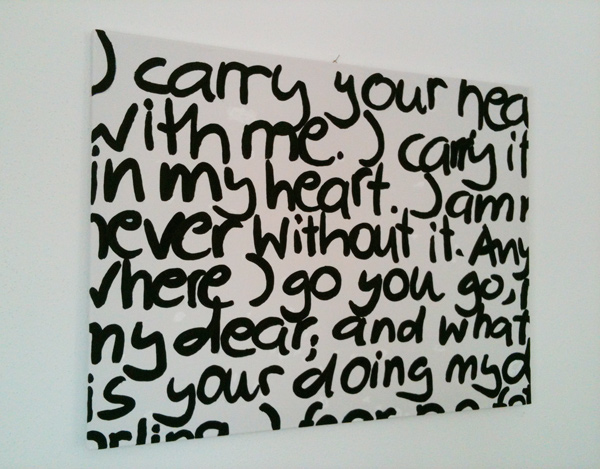 I carry your hea
with me. I carry it
in my heart. I am n
never without it. Any
where I go you go,
my dear; and what
is your doing my d
arling. I fear no fat